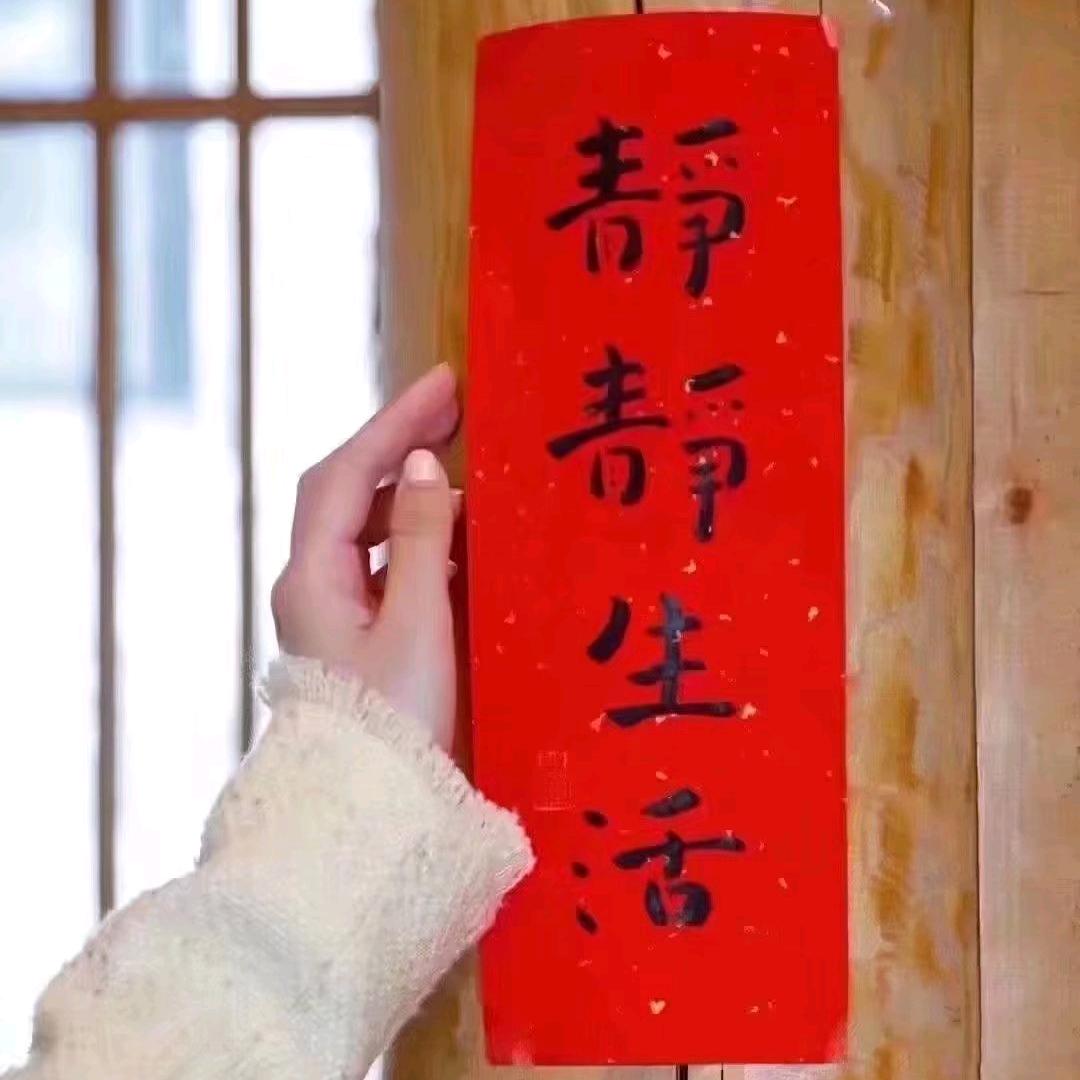 靜靜生活